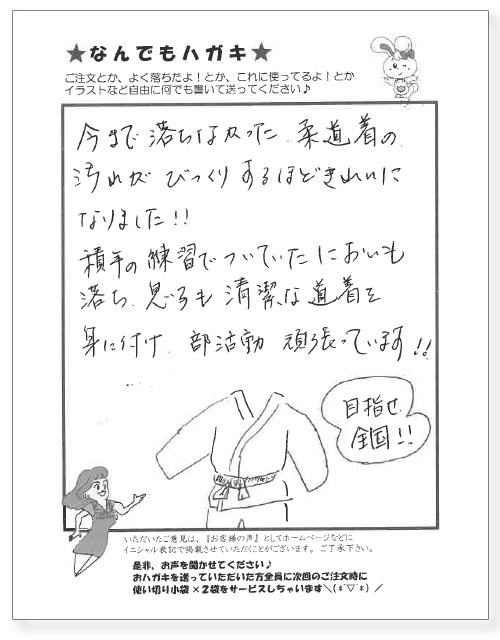 ★なんでもハガキ★
ご注文とか、よく落ちたよ!とか、これに使ってるよ!とか
イラストなど自由に何でも書いて送ってください♪
今まで落ちなかった、柔道着の
汚れが びっくりするほどきれいに
なりました!!
積年の練習でついていたにおいも
落ち、息子も清潔な道着を
身に付け、部活動 頑張っています!!
目指せ
全国!!
いただいたご意見は、『お客様の声』としてホームページなどに
イニシャル表記で掲載させていただくことがございます。ご了承下さい。
是非、お声を聞かせてください♪
おハガキを送っていただいた方全員に次回のご注文時に
使い切り小袋×2袋をサービスしちゃいます＼(*^▽^*)／